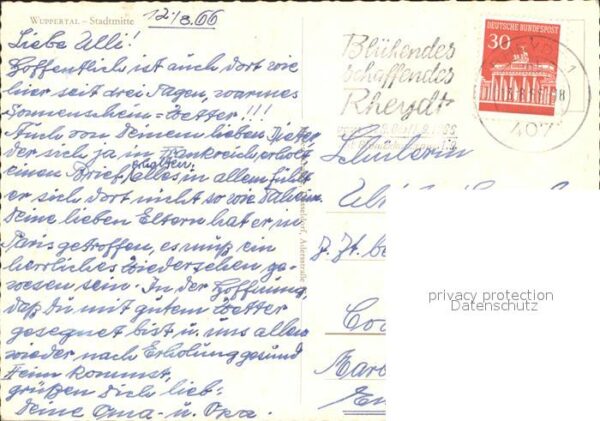 WUPPERTAL – Stadtmitte
12./8.66
Liebe Ulli!
Hoffentlich ist auch dort wie
hier seit drei Tagen, warmes
Sonnenschein-Wetter!!!
Auch von Deinem lieben Dieter
der sich ja in Frankreich erholt
einen Brief erhalten, alles in allem fühlt
er sich dort nicht so wie daheim.
Deine lieben Eltern hat er in
Paris getroffen, es muß ein
herrliches Wiedersehen ge-
wesen sein. In der Hoffnung,
daß Du mit gutem Wetter
gesegnet bist u. uns allen
wieder nach Erholung gesund
heim kommst,
grüßen Dich lieb:
Deine Oma u. Opa.
Blühendes
schaffendes
Rheydt
DEUTSCHE BUNDESPOST
30
407
Schülerin
z. Zt. bei
privacy protection
Datenschutz